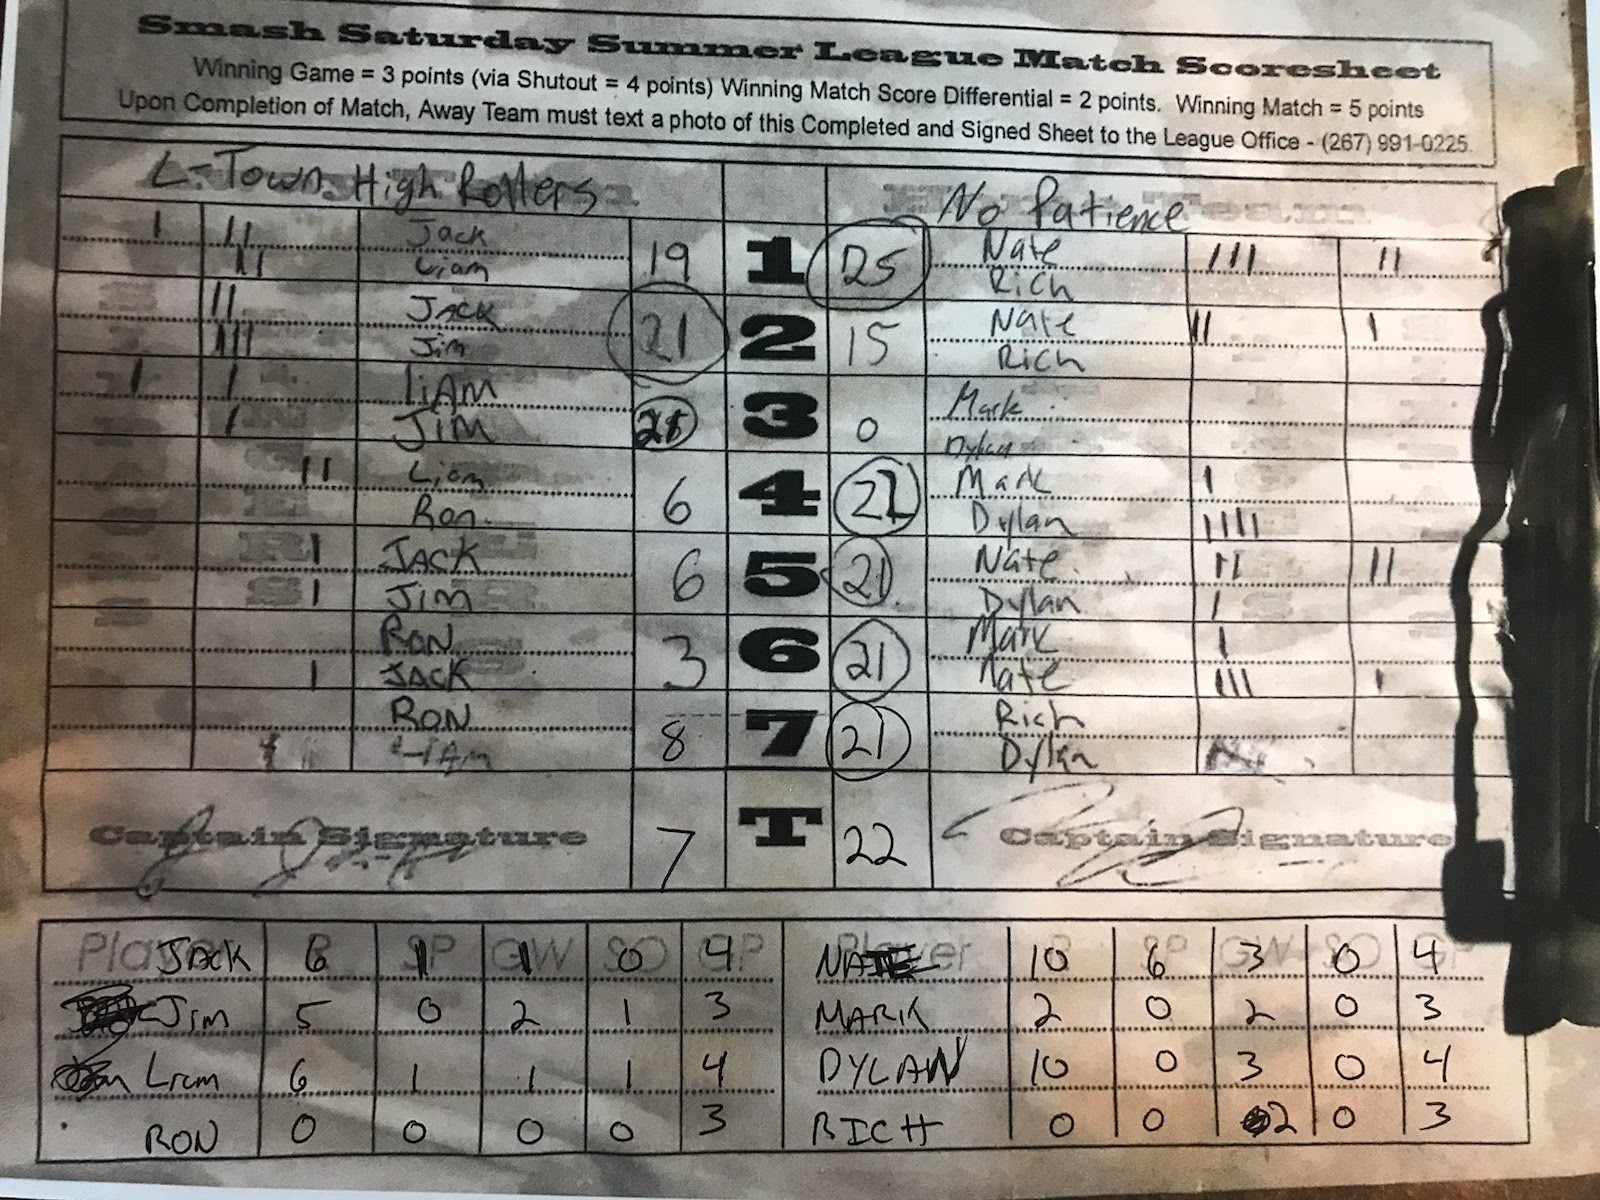 Smash Saturday Summer League Match Scoresheet
Winning Game = 3 points (via Shutout = 4 points) Winning Match Score Differential = 2 points. Winning Match = 5 points
Upon Completion of Match, Away Team must text a photo of this Completed and Signed Sheet to the League Office - (267) 991-0225.
L-Town High Rollers No Patience
Jack Nate
Liam 19 1 25 Rich
JACK Nate
Jim 21 2 15 Rich
LiAM Mark
JIM 3 0 Dylan
Liam Mark
Ron 6 4 Dylan
JACK Nate
Jim 6 5 21 Dylan
RON Mark
JACK 3 6 21 Nate
RON Rich
LiAm 8 7 21 Dylan
Captain Signature 7 T 22 Captain Signature
Player SP GW SO GP Player SP GW SO GP
JACK 6 1 1 0 4 NATE 10 6 3 0 4
Jim 5 0 2 1 3 MARK 2 0 2 0 3
Liam 6 1 1 1 4 DYLAN 10 0 3 0 4
RON 0 0 0 0 3 RICH 0 0 2 0 3